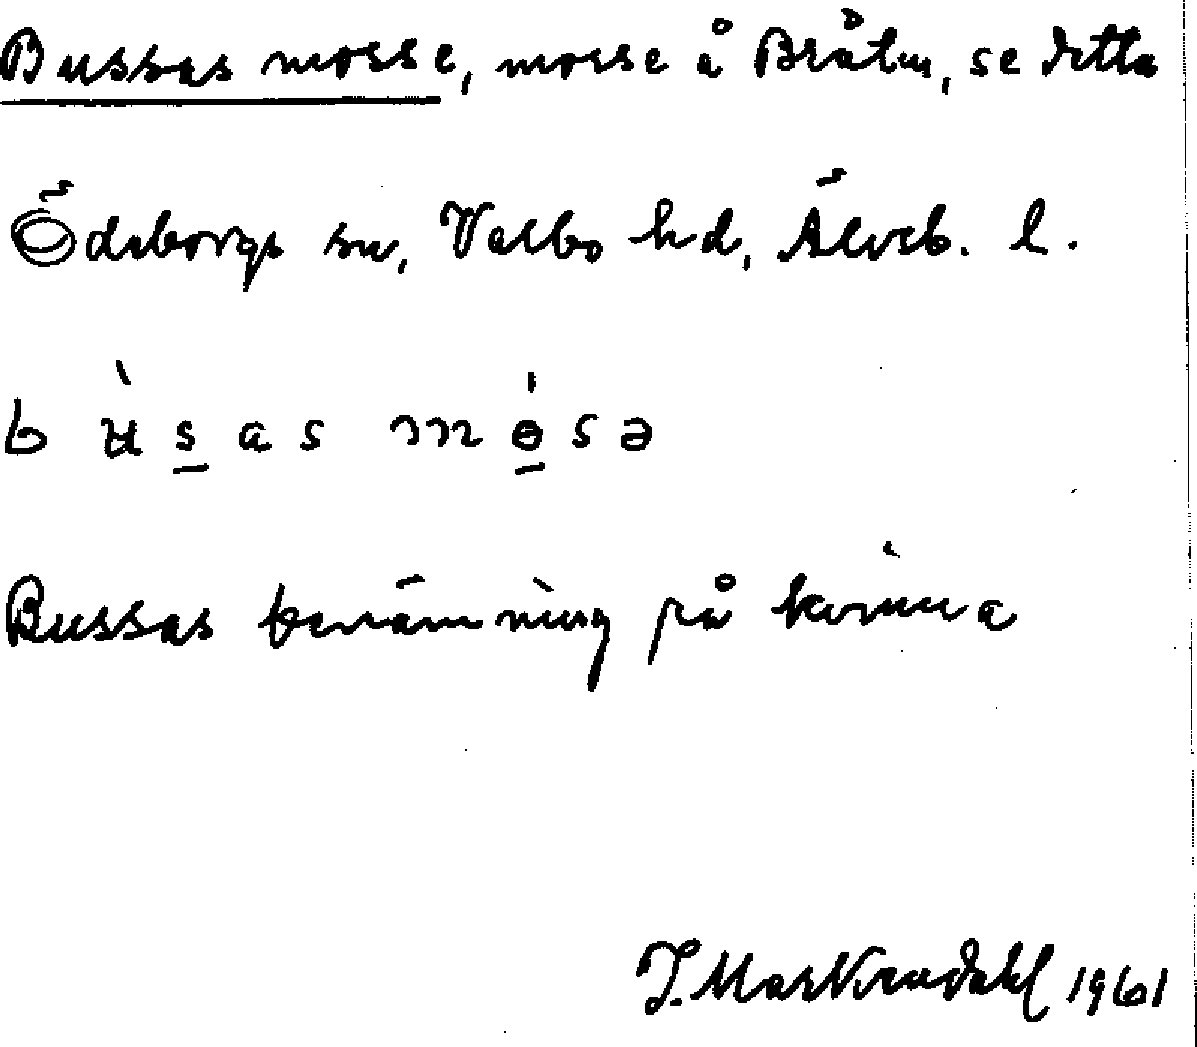 Bussas mosse, mosse å Bråten, se detta
Ödeborgs sn, Valbo hd, Älvsb. l.
b ʉ̀ s a s m ɵ́ s ə
Bussas benämning på kvinna
J. Markendahl 1961